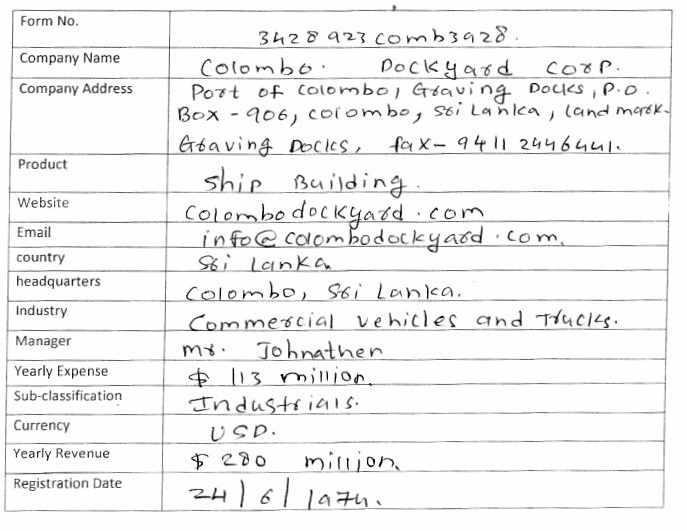 Form No.
3428923comb3928.
Company Name
Colombo. Dockyard corp.
Company Address
Port of Colombo, Graving Docks, P.O.
Box - 906, colombo, Sri Lanka, landmark-
Graving Docks, fax- 9411 2446441.
Product
Ship Building.
Website
Colombodockyard.com
Email
info@colombodockyard.com.
country
Sri lanka
headquarters
Colombo, Sri Lanka.
Industry
Commercial vehicles and Trucks.
Manager
Mr. Johnathen
Yearly Expense
$ 113 million.
Sub-classification
Industrials.
Currency
USD.
Yearly Revenue
$ 280 million.
Registration Date
24/6/1974.